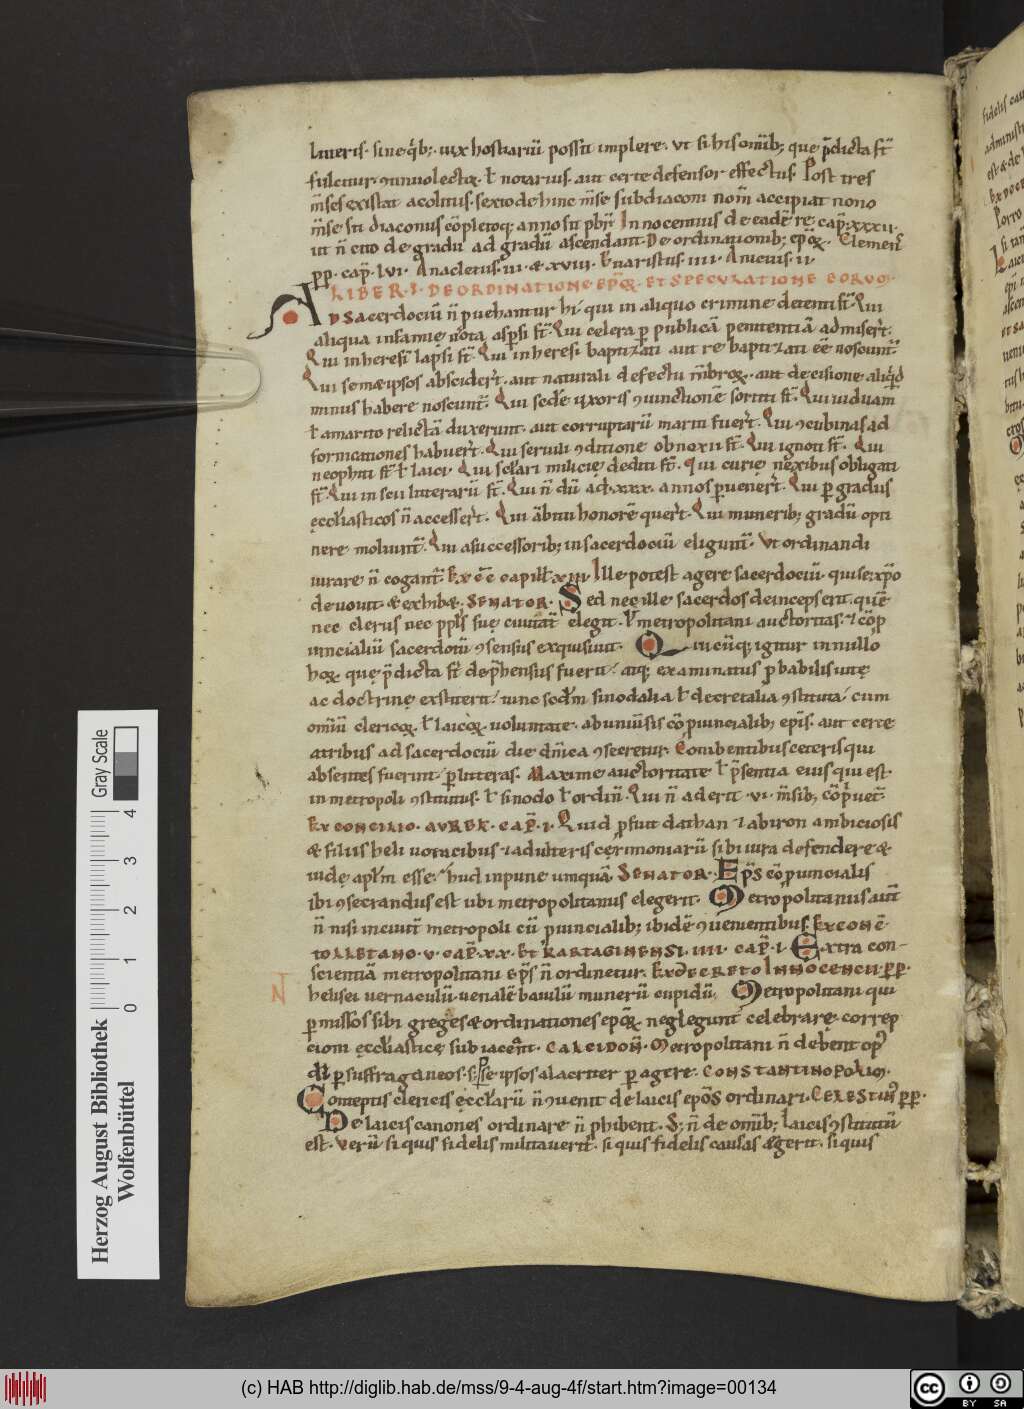 litteris. sine qͥb; uix hostiariū possit implere. ut si his omīb; que p̄dicta st̄
fulcitur. ꝯtinuo lector. ł notarius. aut certe defensor effectus. Post tres
m̄ses existat acolitus. sexto dehinc m̄se subdiaconi nom̄ accipiat nono
m̄se sit diaconus cōpletoq; anno sit pbr̄. Innocentius de eadē re. cap̄. xxxii.
ut n̄ cito de gradu ad gradū ascendant. De ordinationib; ep̄oꝝ. Clemens
pp. cap̄. lvi. Anacletus. iii. & xviii. Euaristus. iiii. Anicius. ii
LIBER. I. DE ORDINATIONE EPOꝜ. ET SPECULATIONE EORUM.
AD Sacerdociū n̄ puehantur hi. qui in aliquo crimine detenti st̄. Qui
aliqua infamię nota aspersi st̄. Qui celera ꝑ publicā penitentiā admiser̄t.
Qui in heresī lapsi st̄. Qui in heresi baptizati aut re baptizati eē noscunt̄.
Qui semæipsos absciderīt. aut naturali defectu m̄broꝝ. aut decisione aliqͥd
minus habere noscunt̄. Qui scd̄e uxoris ꝯiunctionē sortiti st̄. Qui uiduam
ł a marito relictā duxerunt. aut corruptarū mariti fuer̄t. Qui ꝯcubinas ad
fornicationes habuer̄t. Qui seruili ꝯditione obnoxii st̄. Qui ignoti st̄. Qui
neophiti st̄ ł laici. Qui sc̄lari milicię dediti st̄. Qui curię nexibus obligati
st̄. Qui inscii litterarū st̄. Qui n̄ dū ad. xxx. annos ꝑuener̄t. Qui ꝑ gradus
ęccłiasticos n̄ accesser̄t. Qui ābitu honorē quer̄t. Qui munerib; gradū opti
nere moliunt̄. Qui a successorib; in sacerdociū eligunt̄. Ut ordinandi
iurare n̄ cogant̄. Ille potest agere sacerdociū. qui se xp̄o
deuouit & exhibæ. SENATOR. Sed nec ille sacerdos deinceps erit quē
nec clerus nec ppłs suę ciuitat̄ elegit. ł metropolitani auctoritas. ⁊ cōp
uincialiū sacerdotū ꝯsensus exquisiuit. Quicūq; igitur in nullo
hoꝝ quę p̄dicta st̄ dep̄hensus fuerit. atq; examinatus ꝓbabilis uitę
ac doctrinę exstiterit. tunc scd̄m sinodalia ł decretalia ꝯstituta. cum
omīū clericoꝝ. ł laicoꝝ. uoluntate. ab uniūsis cōpuincialib; ep̄is. aut certe
atribus ad sacerdociū die dn̄ica ꝯsecretur. Coniben tibus ceteris qui
absentes fuerint. ꝑ litteras. Maxime auctoritate ł p̄sentia eius qui est
in metropoli ꝯstitutus. ł sinodo ł ordin̄. Qui n̄ aderit. vi. m̄sib; cōp̄uet̄.
EX CONCILIO. AURER. CAP̄. I. Quid ꝓfuit dathan ⁊ abiron ambiciosis
& filiis heli uoracibus ⁊ adulteris cęrimoniarū sibi iura defendere &
SENATOR. Ep̄s cōpuincialis
ibi ꝯsecrandus est ubi metropolitanus elegerit. Metropolitanus aut̄
n̄ nisi in ciuit̄ metropoli cū puincialib; ibidē ꝯuenientibus. EX CONĒ
TOLLETANO. V. CAP̄. XX. ET KARTAGINENSI. IIII. CAP̄. I. Extra con-
scientiā metropolitani ep̄s n̄ ordinetur. EX DECRETO INNOCENCII. PP.
helisei uernaculū uenalē baiulū munerū cupidū. Metropolitani qui
ꝑmissos sibi greges & ordinationes ep̄oꝝ neglegunt celebrare. correp
cioni ęccłiasticę subiacent. CALCIDON̄. Metropolitani n̄ debent op̄i
ꝑ se ipsos alacriter ꝑagere. CONSTANTINOPOLIM.
Conteptis clericis ęccłarū n̄ ꝯuenit de laicis ep̄os ordinari. CELESTINꝰ PP.
De laicis canones ordinare n̄ phibent. S; n̄ de omīb; laicis ꝯstitutū
est. verū si quis fidelis militauerit. si quis fidelis causas ægerit. si quis
Herzog August Bibliothek
Wolfenbüttel
0 1 2 3 4
Gray Scale
(c) HAB http://diglib.hab.de/mss/9-4-aug-4f/start.htm?image=00134
cc BY SA